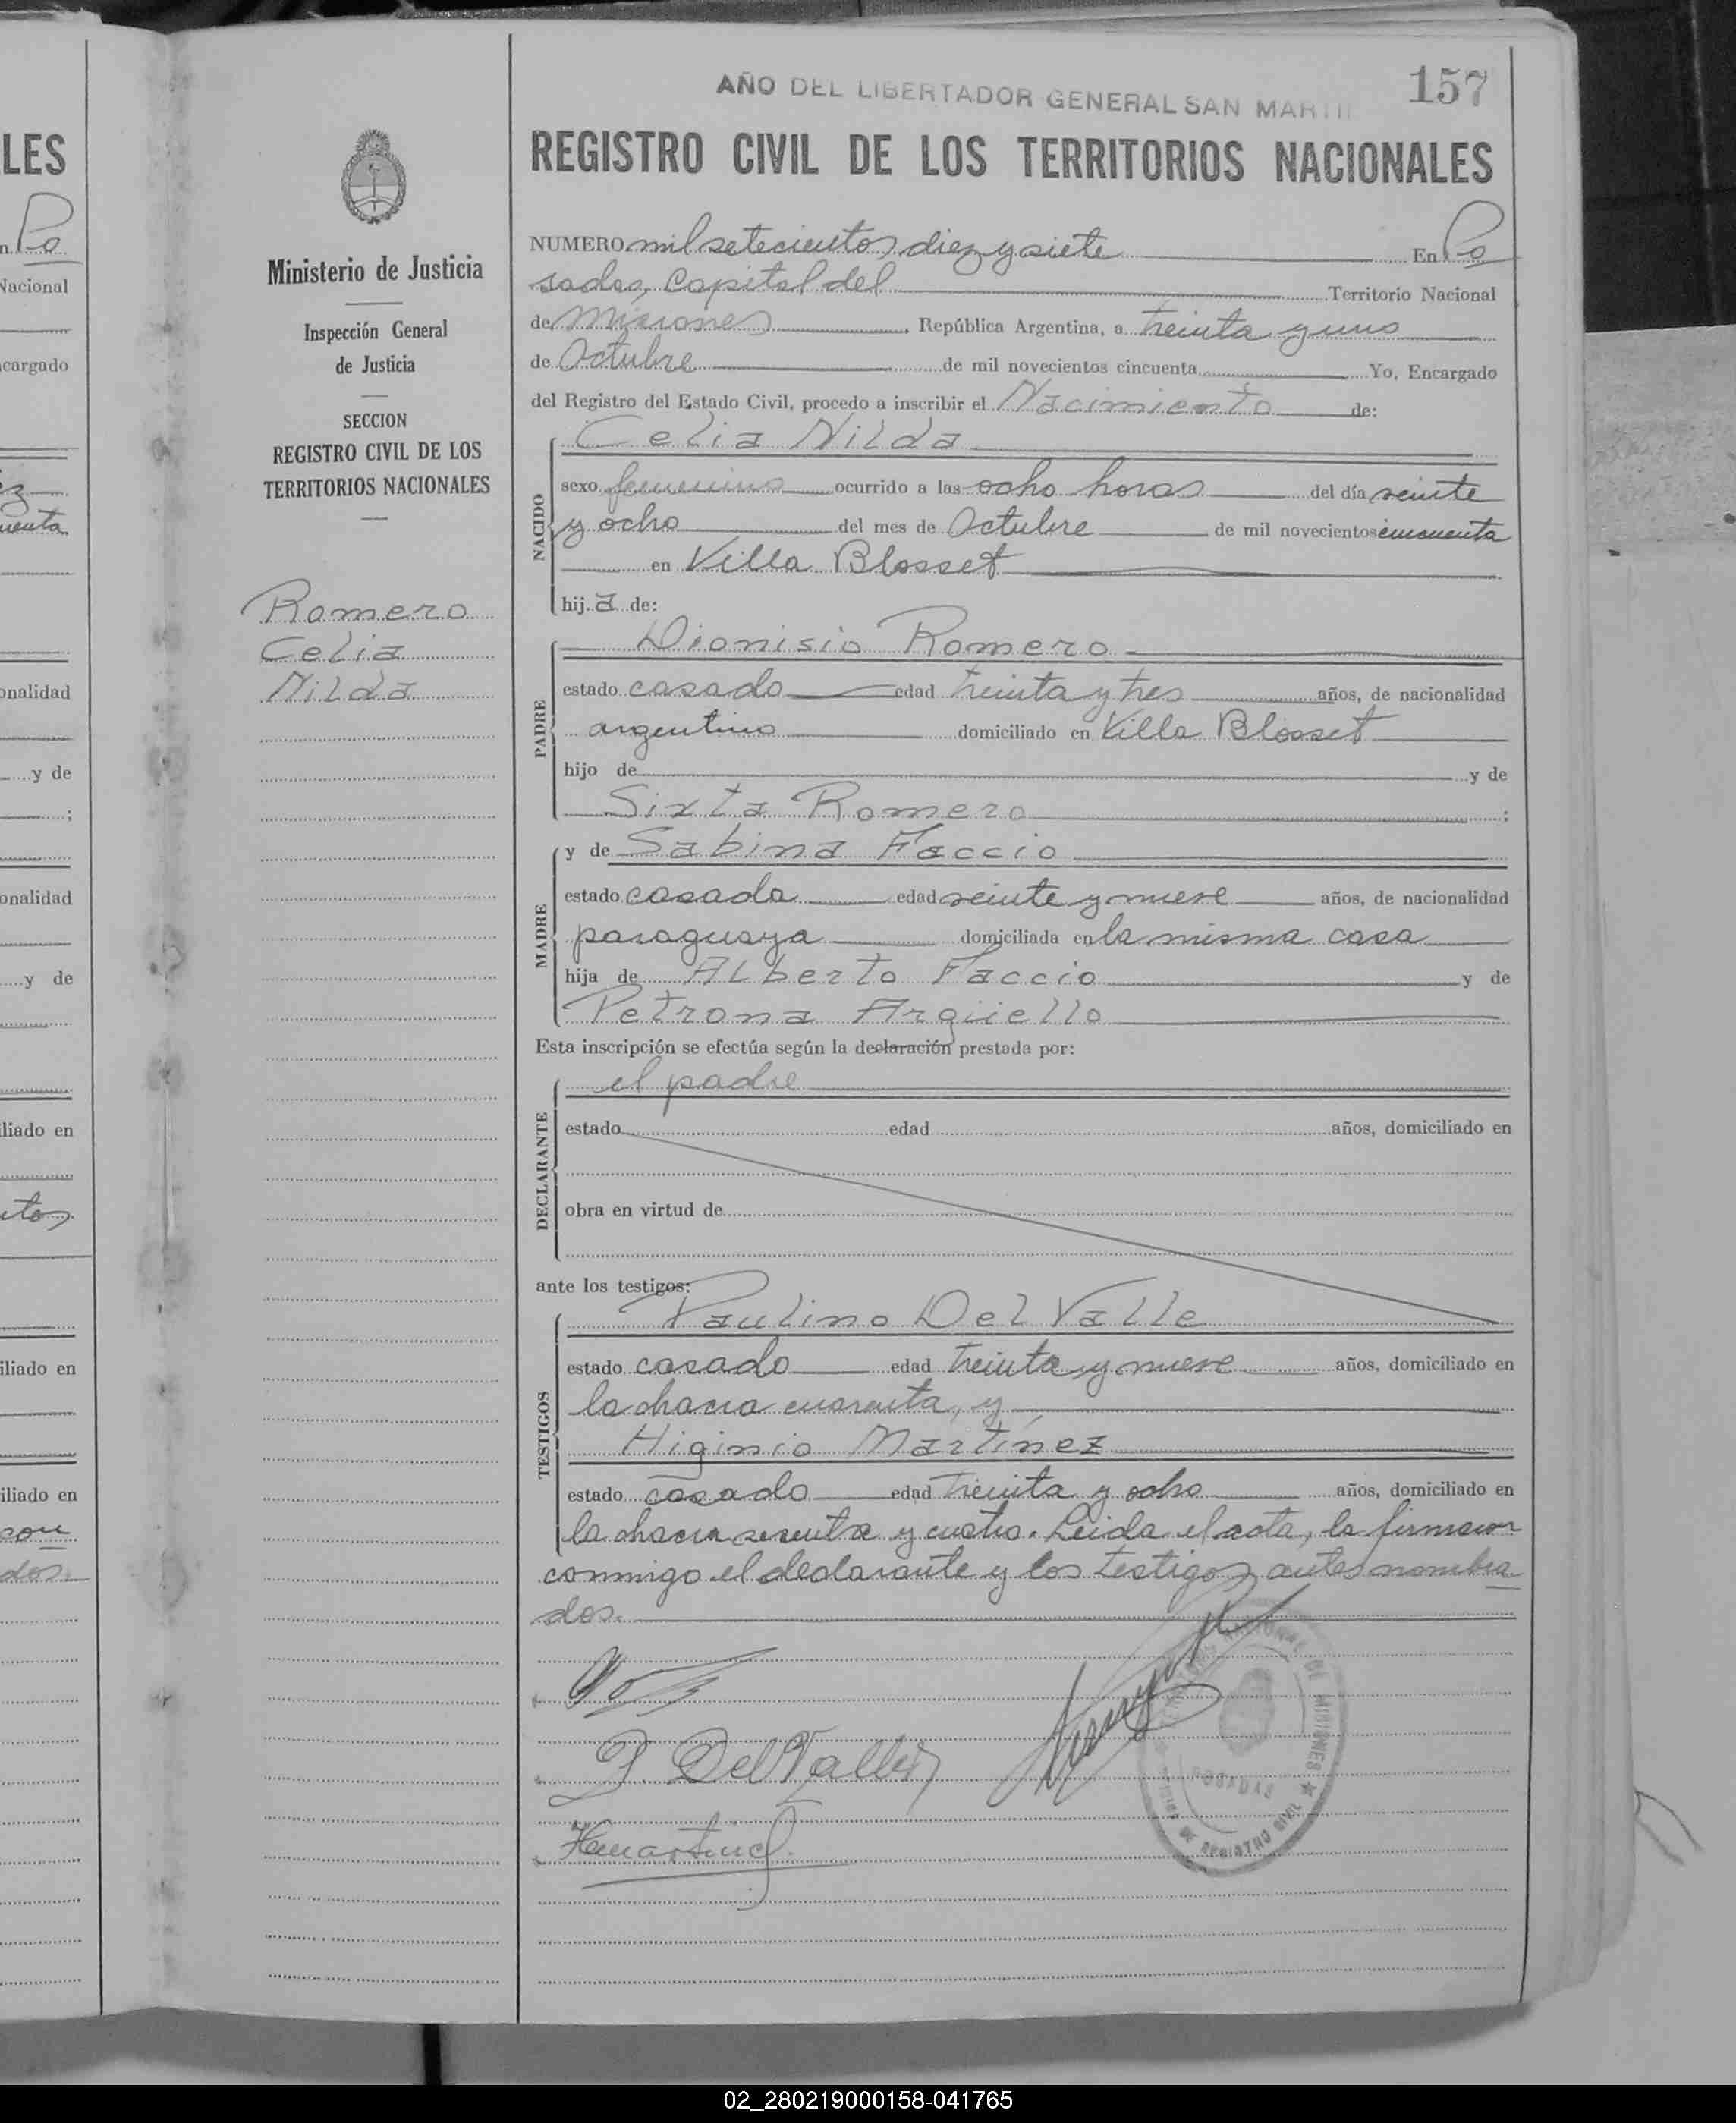 LES
n Po
Nacional
cargado
z
uenta
onalidad
y de
;
onalidad
y de
liado en
itos
iliado en
iliado en
con
dos.
Ministerio de Justicia
Inspección General
de Justicia
SECCION
REGISTRO CIVIL DE LOS
TERRITORIOS NACIONALES
Romero
Celia
Nilda
AÑO DEL LIBERTADOR GENERAL SAN MARTIN
157
REGISTRO CIVIL DE LOS TERRITORIOS NACIONALES
NUMERO mil setecientos diez y siete En Po
sadas, Capital del Territorio Nacional
de Misiones, República Argentina, a treinta y uno
de Octubre de mil novecientos cincuenta Yo, Encargado
del Registro del Estado Civil, procedo a inscribir el Nacimiento de:
NACIDO
Celia Nilda
sexo femenino ocurrido a las ocho horas del día veinte
y ocho del mes de Octubre de mil novecientos cincuenta
en Villa Blosset
hij a de:
PADRE
Dionisio Romero
estado casado edad treinta y tres años, de nacionalidad
argentino domiciliado en Villa Blosset
hijo de y de
Sixta Romero ;
MADRE
y de Sabina Faccio
estado casada edad veinte y nueve años, de nacionalidad
paraguaya domiciliada en la misma casa
hija de Alberto Faccio y de
Petrona Argüello
Esta inscripción se efectúa según la declaración prestada por:
DECLARANTE
el padre
estado edad años, domiciliado en
obra en virtud de
ante los testigos:
TESTIGOS
Paulino Del Valle
estado casado edad treinta y nueve años, domiciliado en
la chacra cuarenta, y
Higinio Martínez
estado casado edad treinta y ocho años, domiciliado en
la chacra sesenta y cuatro. Leida el acta, la firmaron
conmigo el declarante y los testigos antes nombra
dos.
P. Del Valle
HMartinez
NACIONAL DE MISIONES
POSADAS
DE REGISTRO CIVIL
02_280219000158-041765